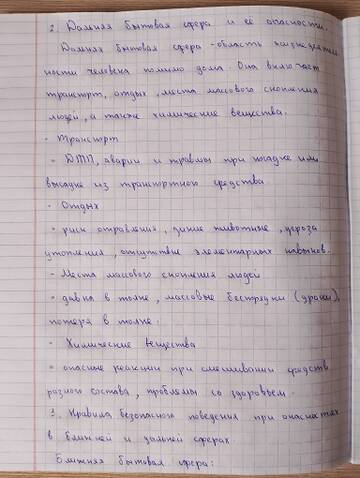 2. Дальняя бытовая сфера и её опасности.
Дальняя бытовая сфера - область жизнедеятель
ности человека помимо дома. Она включает
транспорт, отдых, места массового скопления
людей, а также химические вещества.
- Транспорт
- ДТП, аварии и травмы при посадке или
высадке из транспортного средства.
- Отдых
- риск отравления, дикие животные, угроза
утопления, отсутствие элементарных навыков.
- Места массового скопления людей
- давка в толпе, массовые беспорядки (драки),
потеря в толпе.
- Химические вещества
- опасные реакции при смешивании средств
разного состава, проблемы со здоровьем.
3. Правила безопасного поведения при опасностях
в ближней и дальней сферах
Ближняя бытовая сфера: